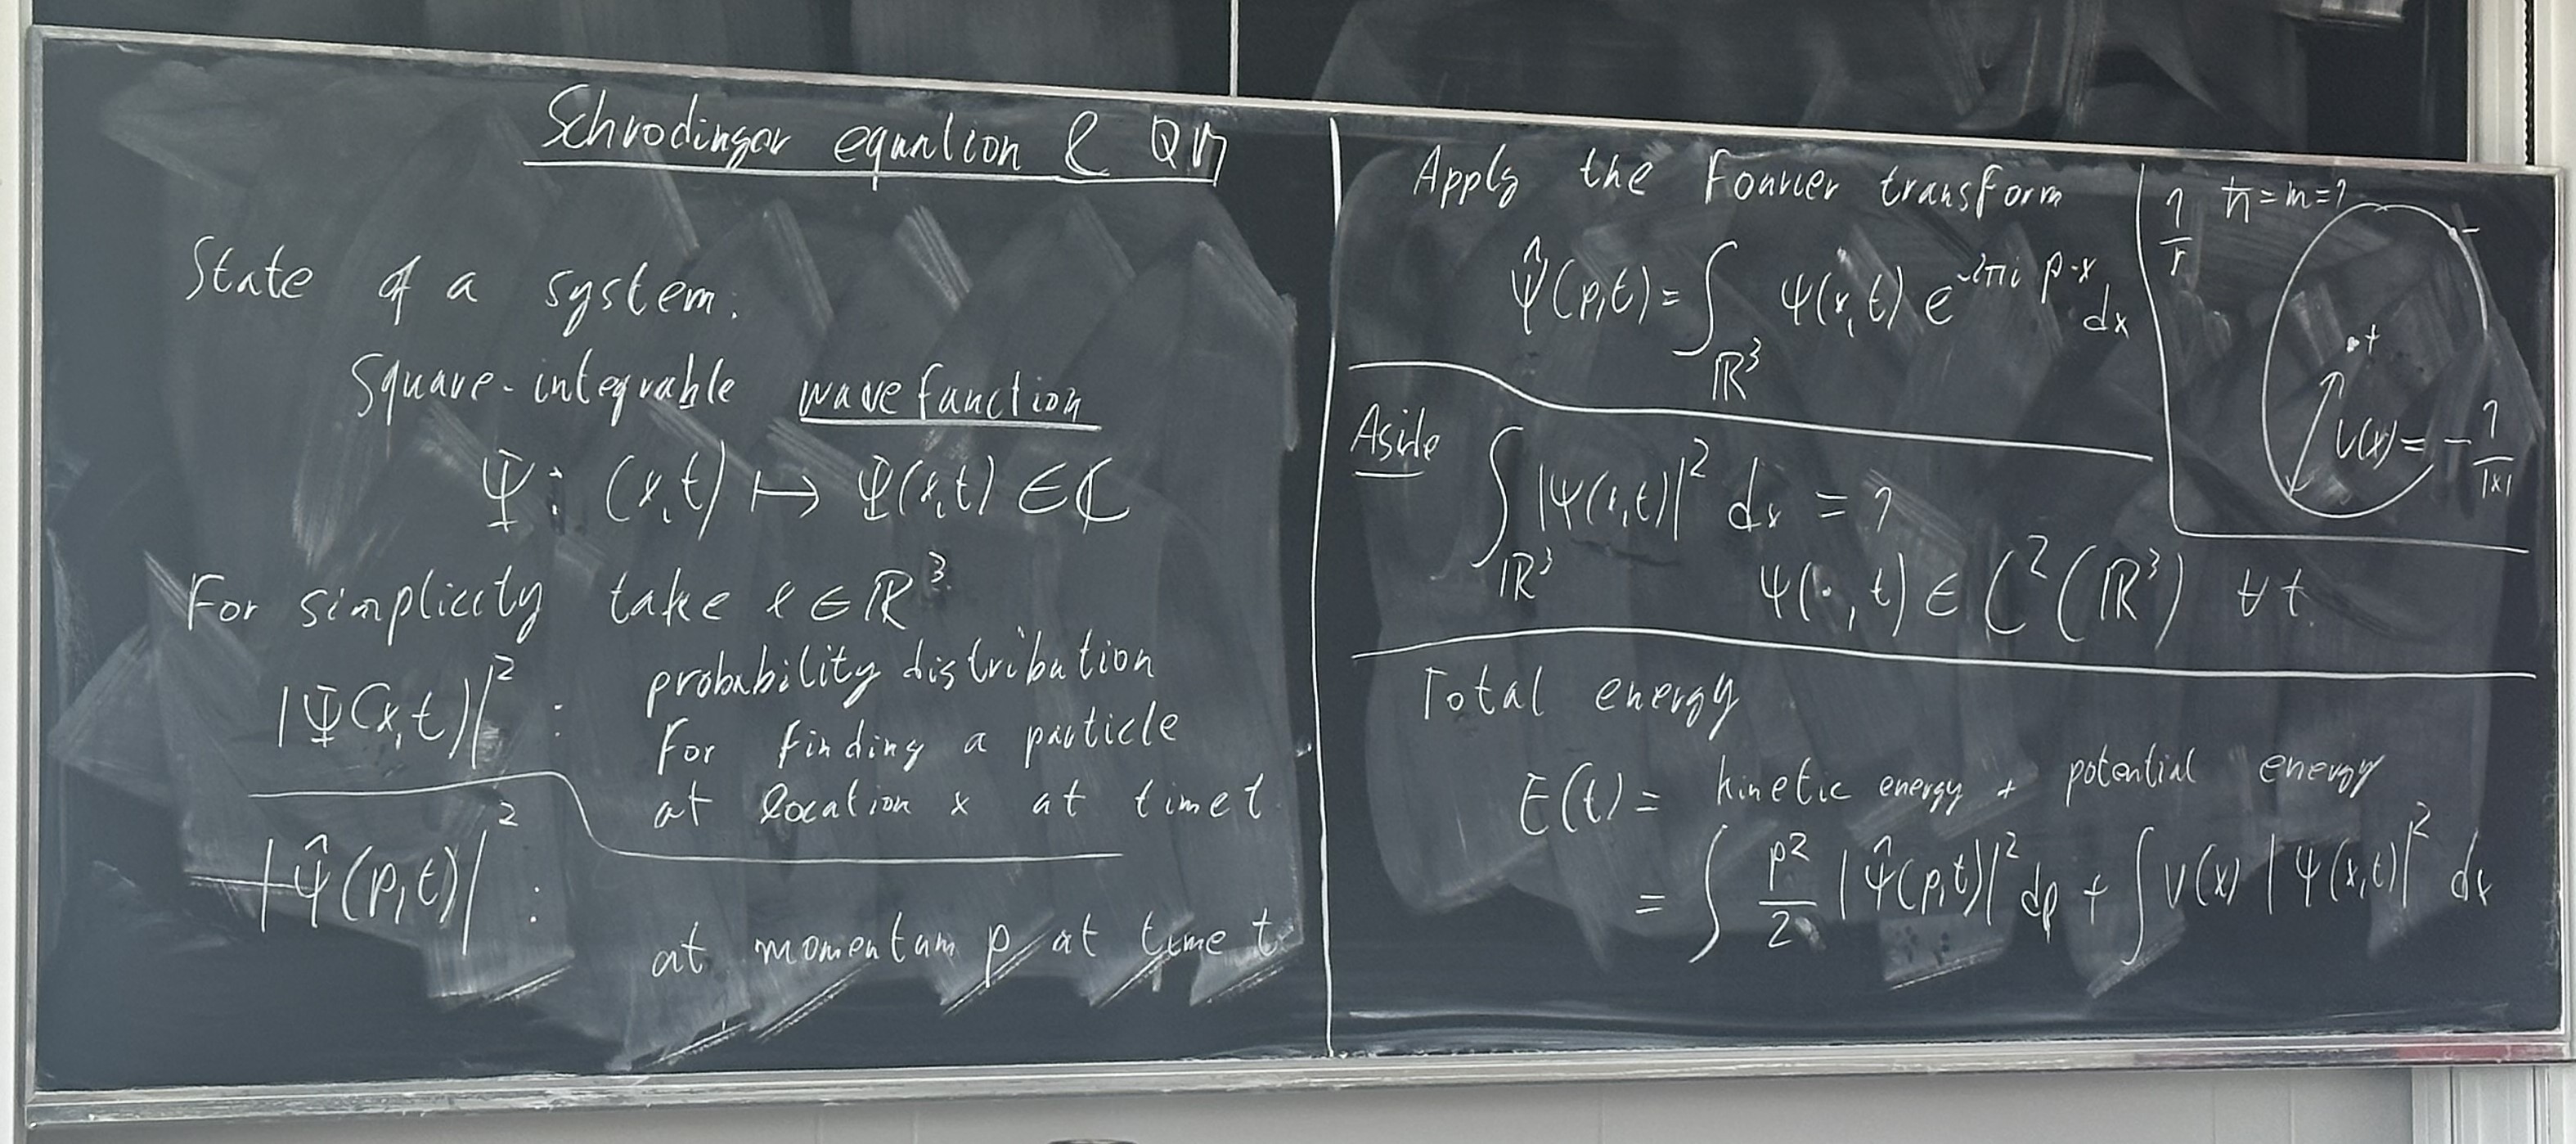 Schrodinger equation & QM
State of a system:
Square-integrable wavefunction
Ψ : (x,t) ↦ Ψ(x,t) ∈ ℂ
For simplicity take x ∈ ℝ³
|Ψ(x,t)|² : probability distribution
for finding a particle
at location x at time t
|Ψ̂(p,t)|² :
at momentum p at time t
Apply the Fourier transform
Ψ̂(p,t) = ∫_{ℝ³} Ψ(x,t) e^{-2πi p·x} dx
1/r ħ = m = 1
-
+
V(x) = - 1/|x|
Aside
∫_{ℝ³} |Ψ(x,t)|² dx = 1
Ψ(·,t) ∈ C²(ℝ³) ∀ t
Total energy
E(t) = kinetic energy + potential energy
= ∫ p²/2 |Ψ̂(p,t)|² dp + ∫ V(x) |Ψ(x,t)|² dx